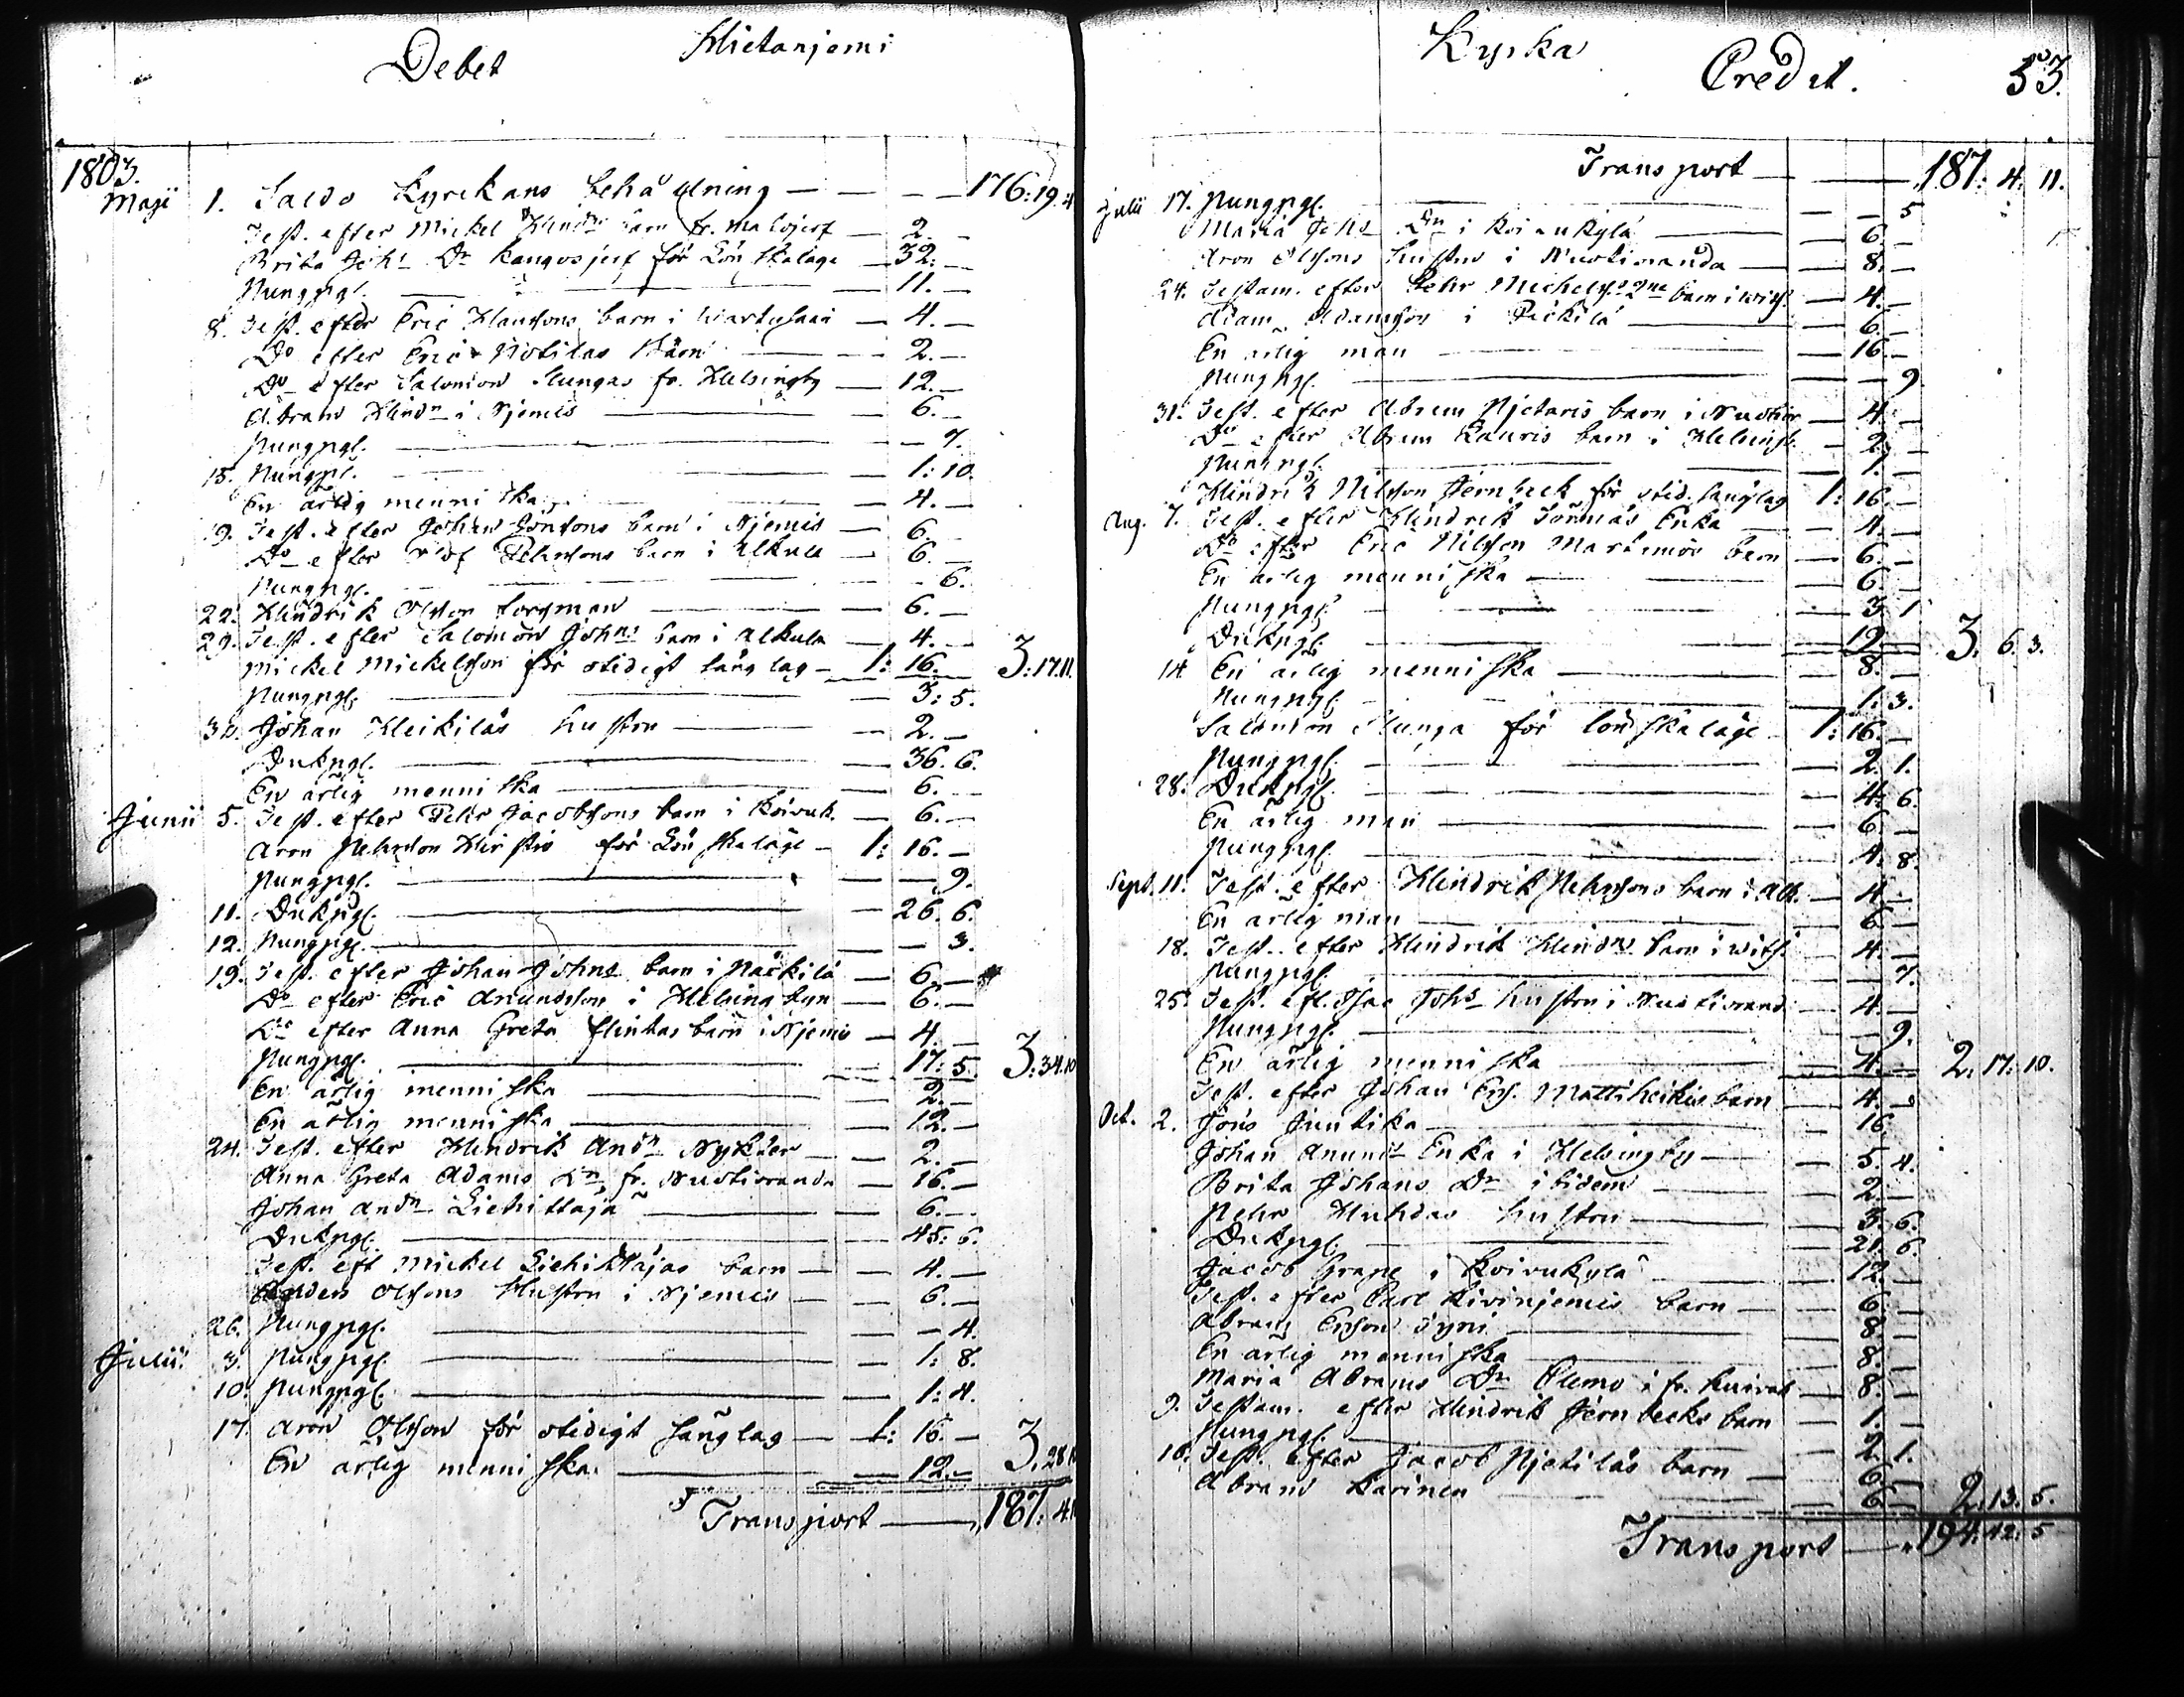 Debet Hietanjemi
1803.
Maji 1. Saldo Kyrckans behållning — 176:19.4
Test. efter Mickel Hindrs barn fr. Matojerf — 2. —
Brita Johs Dr Kangosjerf för Lönskaläge — 32. —
Pungpgr. — 11. —
8. Test. efter Eric Hanssons barn i — 4. —
Do efter Eric Notilas Barn — 2. —
Do efter Salomon Slungas fr. Helsingby — 12. —
Abram Hindn i Njemis — 6. —
Pungpgr. — 7.
15. Pungpgr. — 1: 10.
En ärlig menniska — 4. —
19. Test. efter Johan Jönsons barn i Njemis — 6. —
Do efter Olof Pehrssons barn i Alkula — 6. —
Pungpgr. — 6.
22. Hindrik Olsson Forsman — 6. —
29. Test. efter Salomon Johns barn i Alkula — 4. —
Mickel Mickelsson för otidigt sänglag — 1: 16. — 3:17.11.
Pungpgr. — 3: 5.
30. Johan Heikiläs hustru — 2. —
Dukpgr. — 36. 6.
En ärlig menniska — 6. —
Junii 5. Test. efter Pehr Jacobssons barn i Koivuk. — 6. —
Aron Pehrsson Hirstiö för Lönskaläge — 1: 16. —
Pungpgr. — 9.
11. Dukpgr. — 26. 6.
12. Pungpgr. — 3.
19. Test. efter Johan Johns barn i Päckilä — 6. —
Do efter Eric Anundsson i Helsingbyn — 6. —
Do efter Anna Greta Flinkas barn i Njemis — 4. —
Pungpgr. — 17: 5. 3:34.10
En ärlig menniska — 2. —
En ärlig menniska — 12. —
24. Test. efter Hendrik Andn Nykter — 2. —
Anna Greta Adams Dr fr. Nuotioranda — 16. —
Johan Andn Liehittäjä — 6. —
Dukpgr. — 45: 6.
Test. eft Mickel Liehittäjäs barn — 4. —
Anders Olssons Hustru i Njemis — 6. —
26. Pungpgr. — 4.
Julii 3. Pungpgr. — 1: 8.
10. Pungpgr. — 1: 4.
17. Aron Olsson för otidigt sänglag — 1: 16. —
En ärlig menniska — 12. — 3.28.
Transport — 187: 4.
Kyrka Credit. 53.
Transport — 187: 4. 11.
Julii 17. Pungpgr. — 5
Maria Johs Dr i Koivukylä — 6. —
Aron Olssons hustru i Nuotioranda — 8. —
24. Testam. efter Pehr Michelss. 2ne barn i — 4. —
Adam Adamsson i Päckilä — 6. —
En ärlig man — 16. —
Pungpgr. — 9
31. Test. efter Abram Pjetaris barn i Nuotior — 4. —
Do efter Abram Lauris barn i Helsingb. — 2. —
Pungpgr. — 1. —
Hindrik Nilsson Jernbeck för otid. sänglag 1: 16. —
Aug. 7. Test. efter Hindrik Enka — 4. —
Do efter Eric Nilsson barn — 6. —
En ärlig menniska — 6. —
Pungpgr. — 3. 1
Dukpgr. — 19. — 3. 6. 3.
14 En ärlig menniska — 8. —
Pungpgr. — 1. 3.
Salomon Slunga för lönskaläge 1: 16. —
Pungpgr. — 2. 1.
28. Dukpgr. — 4. 6.
En ärlig man — 6. —
Pungpgr. — 4. 8.
Sept. 11. Test. efter Hindrik Pehrssons barn i Alk. — 4. —
En ärlig man — 6. —
18. Test. efter Hindrik Hindrs barn i — 4. —
Pungpgr. — 7.
25. Test. eft. Isac Johs hustru i Nuotiorand. — 4. —
Pungpgr. — 9.
En ärlig menniska — 4. — 2. 17: 10.
Test. efter Johan Ers. Mattiheikis barn — 4. —
Oct. 2. Jöns Juntika — 16.
Johan Anunds Enka i Helsingby — 5. 4.
Brita Johans Dr ibidem — 2. —
Pehr hustru — 3. 6.
Dukpgr. — 21. 6.
Jacob Grape i Koivukylä — 12. —
Test. efter Carl Kivinjemis barn — 6. —
Abram Ersson — 8. —
En ärlig menniska — 8. —
Maria Abrams Dr — 8. —
9. Testam. efter Hendrik Jernbecks barn — 1. —
Pungpgr. — 2. 1.
16. Test. efter Jacob Pjetiläs barn — 6. —
Abram Karinen — 6. — 2. 13. 5.
Transport — 194: 42. 5